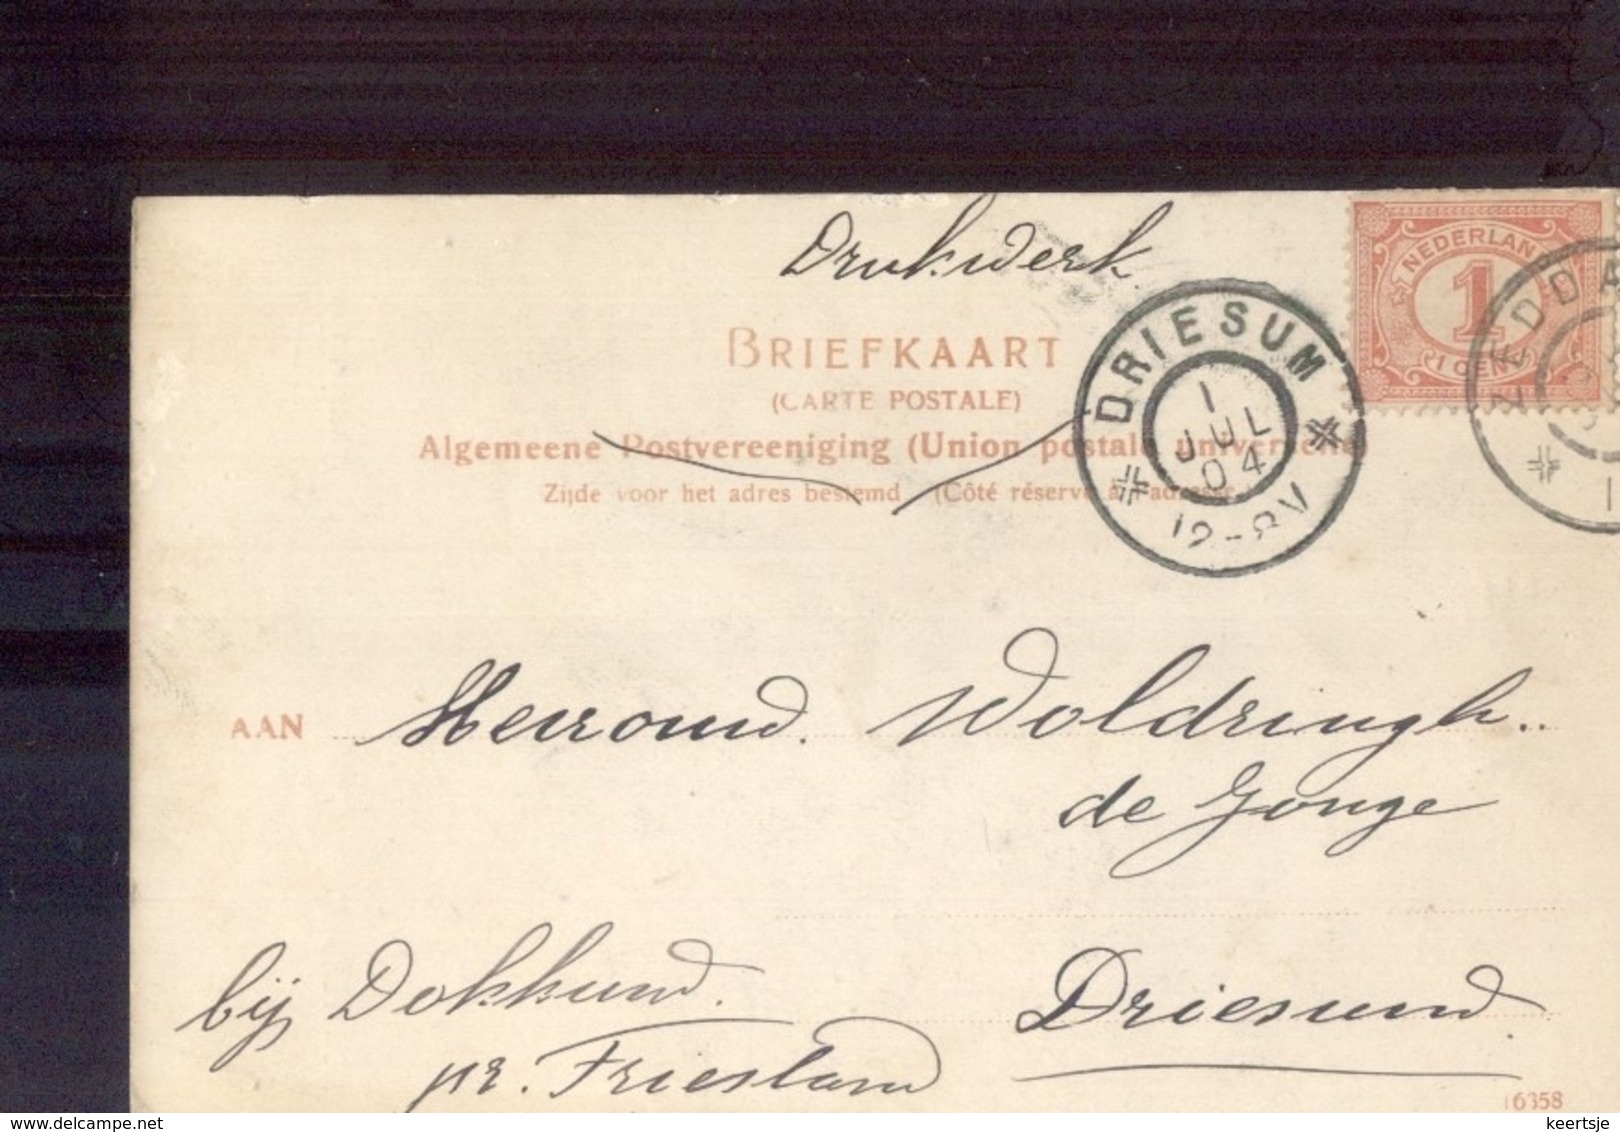 Drukwerk
NEDERLAN
1
1 CEN
BRIEFKAART
(CARTE POSTALE)
Algemeene Postvereeniging (Union postale universelle)
Zijde voor het adres bestemd (Côté réservé à l'adresse
DRIESUM
1
JUL
04
12-8V
AAN Woldringh
de Jonge
bij Dokkum
Driesum
pr. Friesland
16358
keertsje